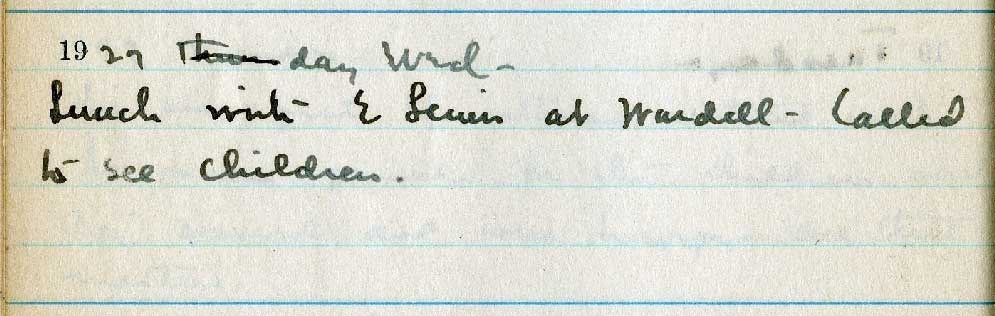 1927 Thursday Wed -
Lunch with E Lewis at Wardell - Called
to see children.